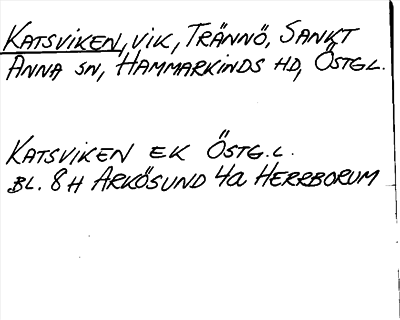 KATSVIKEN, VIK, TRÄNNÖ, SANKT
ANNA SN, HAMMARKINDS HD, ÖSTGL.
KATSVIKEN EK ÖSTG.L.
BL. 8H ARKÖSUND 4a HERRBORUM